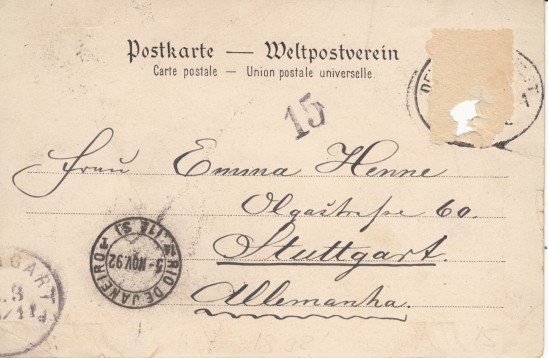 Postkarte — Weltpostverein
Carte postale — Union postale universelle.
15
Frau Emma Henne
Olgastraße 60.
Stuttgart.
Allemanha.
RIO DE JANEIRO
5 NOV 92
GART